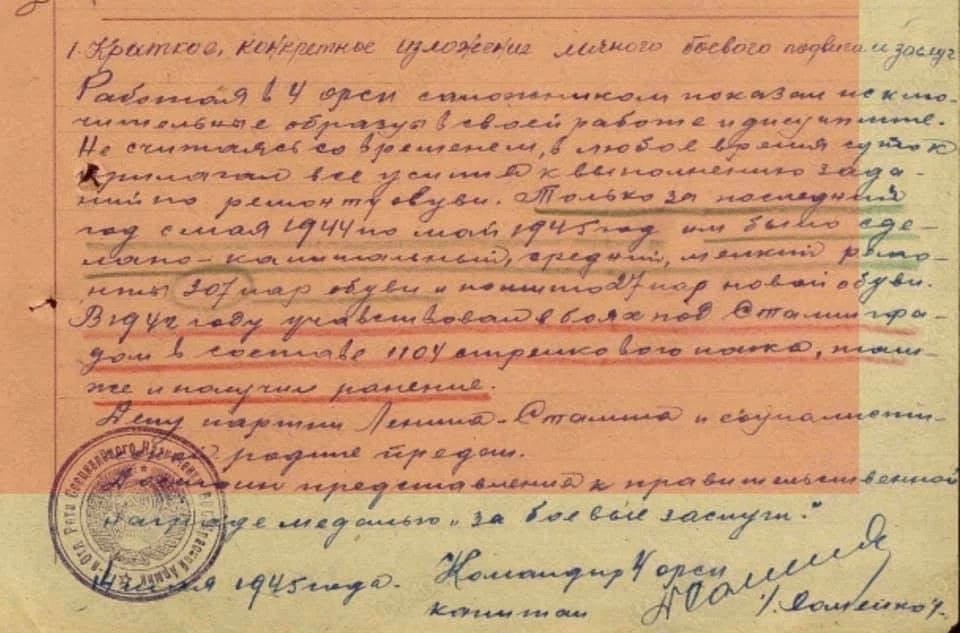 1. Краткое, конкретное изложение личного боевого подвига и заслуг
Работая в 4 орсн сапожником показал исклю-
чительные образцы в своей работе и дисциплине.
Не считаясь со временем, в любое время суток
прилагал все усилия к выполнению зада-
ний по ремонту обуви. Только за последний
год с мая 1944 по май 1945 год им было сде-
лано - капитальный, средний, мелкий ремо-
нты 307 пар обуви и пошито 27 пар новой обуви.
В 1942 году учавствовал в боях под Сталингра-
дом в составе 1104 стрелкового полка, там-
же и получил ранение.
Делу партии Ленина-Сталина и социалисти-
родине предан.
Достоин представления к правительственной
награде медалью „за боевые заслуги."
1945 года. Командир 4 орсн
капитан /Сомейко/
Рота Специального Назначения